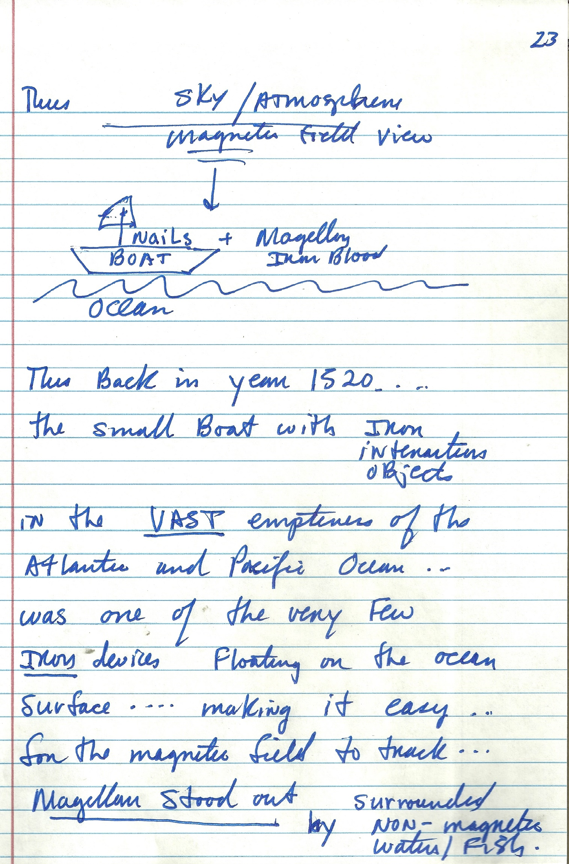 23
Thus SKY / ATmosphere
Magnetic Field View
Nails + Magellan
BOAT Iron Blood
Ocean
Thus Back in year 1520....
the small Boat with Iron
interactions
OBjects
in the VAST empteness of the
Atlantic and Pacific Ocean ..
was one of the very Few
Irons devices Floating on the ocean
Surface .... making it easy ...
for the magnetic field to track...
Magellan Stood out surrounded
by NON-magnetic
waters/Fish.